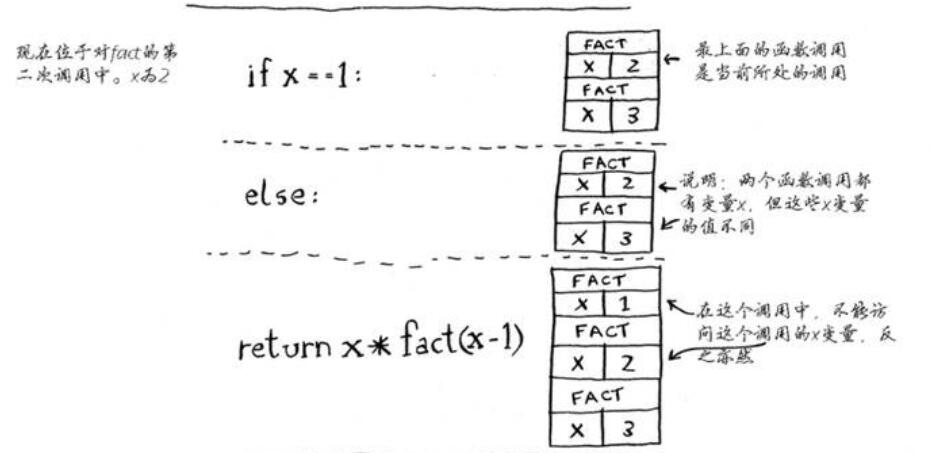 现在位于对fact的第
二次调用中。x为2
if x==1:
FACT
X 2
FACT
X 3
最上面的函数调用
是当前所处的调用
else:
FACT
X 2
FACT
X 3
说明：两个函数调用都
有变量x，但这些x变量
的值不同
return x*fact(x-1)
FACT
X 1
FACT
X 2
FACT
X 3
在这个调用中，不能访
问这个调用的x变量，反
之亦然